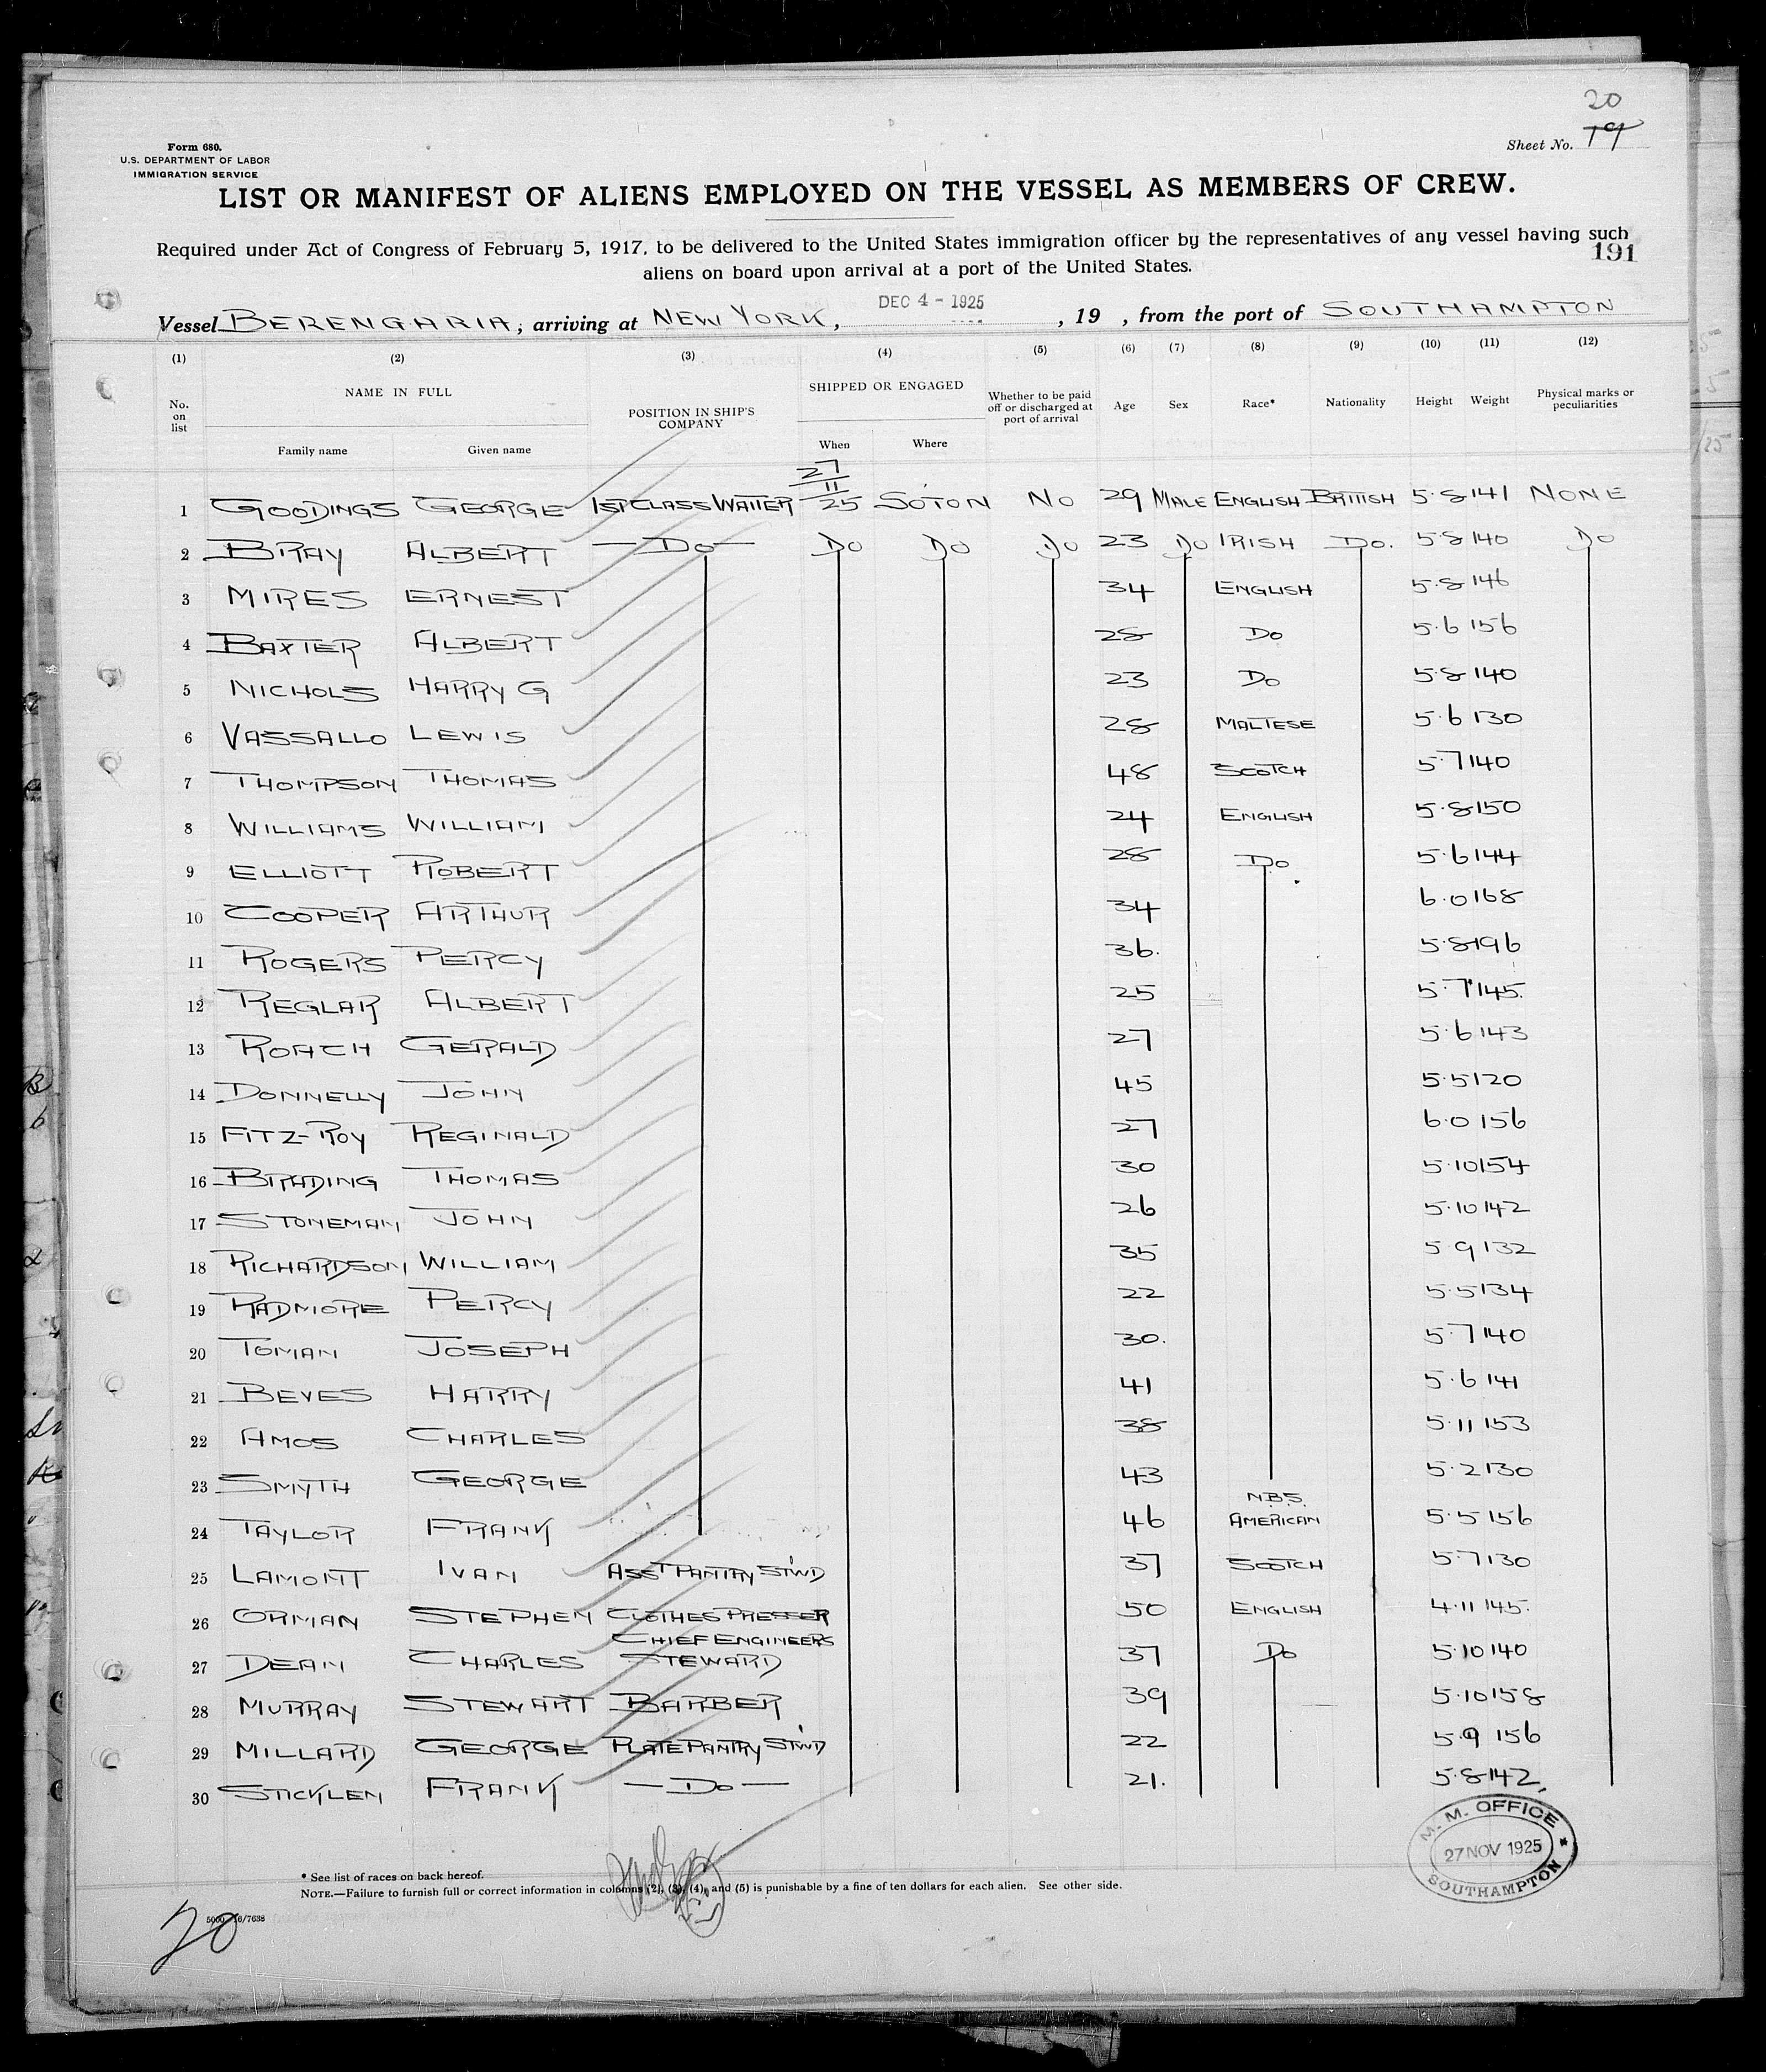 20
Sheet No. 19
Form 680.
U.S. DEPARTMENT OF LABOR
IMMIGRATION SERVICE
LIST OR MANIFEST OF ALIENS EMPLOYED ON THE VESSEL AS MEMBERS OF CREW.
Required under Act of Congress of February 5, 1917, to be delivered to the United States immigration officer by the representatives of any vessel having such
aliens on board upon arrival at a port of the United States.
191
Vessel BERENGARIA; arriving at NEW YORK, DEC 4 - 1925, 19 , from the port of SOUTHAMPTON
(1) (2) (3) (4) (5) (6) (7) (8) (9) (10) (11) (12)
No. on list NAME IN FULL POSITION IN SHIP'S COMPANY SHIPPED OR ENGAGED Whether to be paid off or discharged at port of arrival Age Sex Race* Nationality Height Weight Physical marks or peculiarities
Family name Given name When Where
1 GOODINGS GEORGE 1ST CLASS WAITER 27/11/25 SO'TON NO 29 MALE ENGLISH BRITISH 5.8 141 NONE
2 BRAY ALBERT — DO — DO DO DO 23 DO IRISH DO. 5.8 140 DO
3 MIRES ERNEST 34 ENGLISH 5.8 146
4 BAXTER ALBERT 28 DO 5.6 156
5 NICHOLS HARRY G 23 DO 5.8 140
6 VASSALLO LEWIS 28 MALTESE 5.6 130
7 THOMPSON THOMAS 48 SCOTCH 5.7 140
8 WILLIAMS WILLIAM 24 ENGLISH 5.8 150
9 ELLIOTT ROBERT 28 DO 5.6 144
10 COOPER ARTHUR 34 6.0 168
11 ROGERS PERCY 36. 5.8 196
12 REGLAR ALBERT 25 5.7 145.
13 ROACH GERALD 27 5.6 143
14 DONNELLY JOHN 45 5.5 120
15 FITZ-ROY REGINALD 27 6.0 156
16 BRADING THOMAS 30 5.10 154
17 STONEMAN JOHN 26 5.10 142
18 RICHARDSON WILLIAM 35 5.9 132
19 RADMORE PERCY 22 5.5 134
20 TOMAN JOSEPH 30. 5.7 140
21 BEVES HARRY 41 5.6 141
22 AMOS CHARLES 38 5.11 153
23 SMYTH GEORGE 43 5.2 130
24 TAYLOR FRANK 46 N.B.S. AMERICAN 5.5 156
25 LAMONT IVAN ASST PANTRY ST'WD 37 SCOTCH 5.7 130
26 ORMAN STEPHEN CLOTHES PRESSER 50 ENGLISH 4.11 145.
27 DEAN CHARLES CHIEF ENGINEERS STEWARD 37 DO 5.10 140
28 MURRAY STEWART BARBER 39 5.10 158
29 MILLARD GEORGE PLATE PANTRY ST'WD 22 5.9 156
30 STICKLEN FRANK — DO — 21. 5.8 142
M. M. OFFICE
27 NOV 1925
SOUTHAMPTON
* See list of races on back hereof.
NOTE.—Failure to furnish full or correct information in columns (2), (3), (4), and (5) is punishable by a fine of ten dollars for each alien. See other side.
20